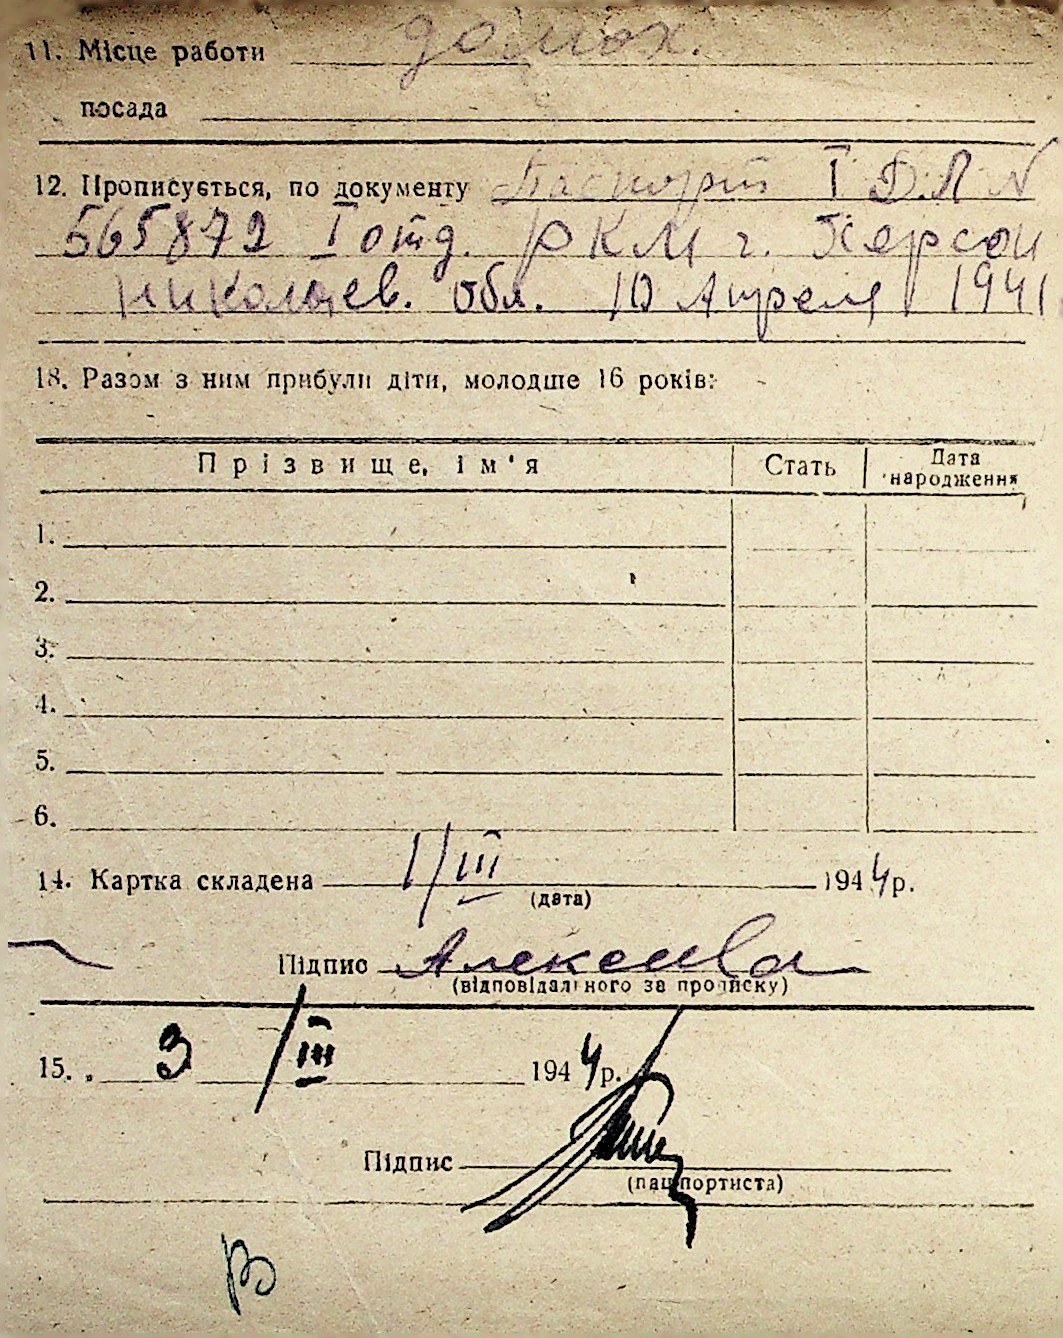 11. Місце работи домох.
посада
12. Прописується, по документу Паспорт I ДЛ №
565872 I отд. РКМ г. Херсон
Николаев. обл. 10 Апреля 1941
18. Разом з ним прибули діти, молодше 16 років:
Прізвище, ім'я Стать Дата народження
1.
2.
3.
4.
5.
6.
14. Картка складена 1/III 1944р.
(дата)
Підпис Алексеева
(відповідального за прописку)
15. „ 3 /III 1944р.
Підпис
(пашпортиста)